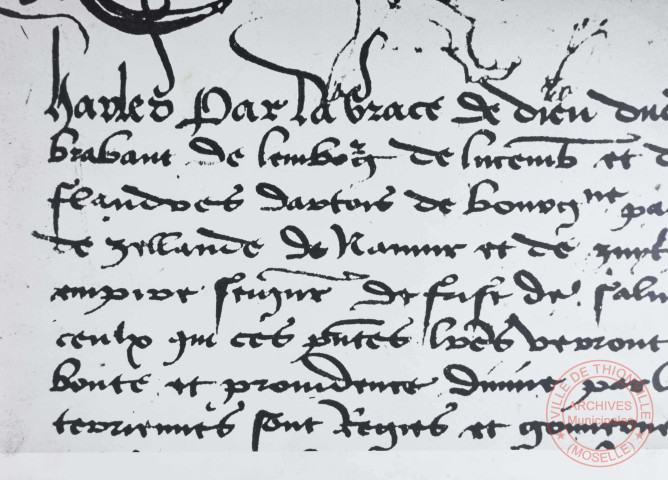 harles Par la grace de dieu duc
brabant de lembourg de lucemb et d
flandres dartois de bourgne pa
de zellande de Namur et de zuyt
empire seigneur de frise de salin
ceulx qui ces pntes lres verront
bonte et prouidence diuine par l
terriennes sont Regies et gouuerne
VILLE DE THIONVILLE
ARCHIVES
Municipales
(MOSELLE)